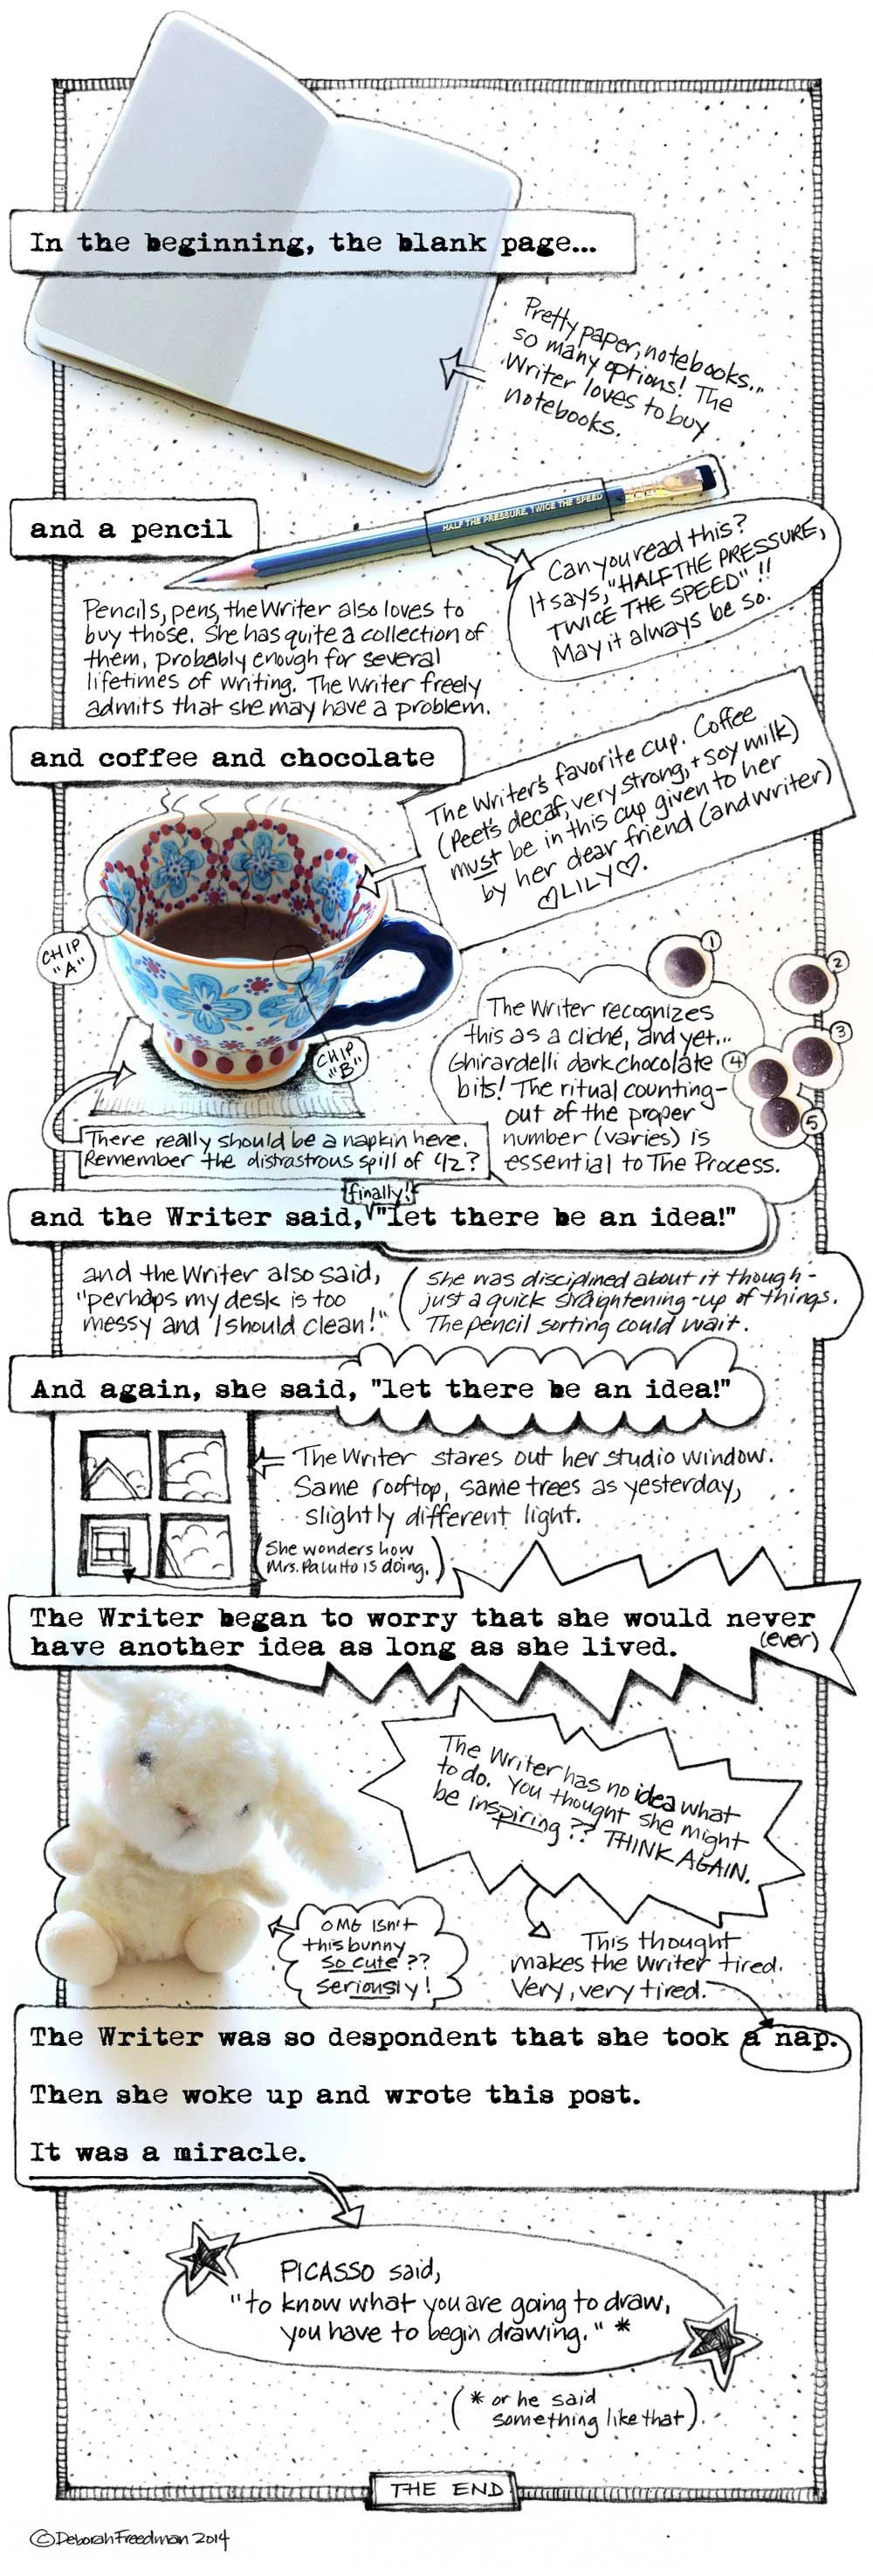 In the beginning, the blank page...
Pretty paper, notebooks...
so many options! The
Writer loves to buy
notebooks.
HALF THE PRESSURE, TWICE THE SPEED
and a pencil
Can you read this?
It says, "HALF THE PRESSURE,
TWICE THE SPEED" !!
May it always be so.
Pencils, pens, the Writer also loves to
buy those. She has quite a collection of
them, probably enough for several
lifetimes of writing. The Writer freely
admits that she may have a problem.
and coffee and chocolate
The Writer's favorite cup. Coffee
(Peet's decaf, very strong, + soy milk)
must be in this cup given to her
by her dear friend (and writer)
♡LILY♡.
CHIP
"A"
CHIP
"B"
1
2
3
4
5
The Writer recognizes
this as a cliché, and yet...
Ghirardelli dark chocolate
bits! The ritual counting-
out of the proper
number (varies) is
essential to The Process.
There really should be a napkin here.
Remember the distrastrous spill of 4/2?
finally!
and the Writer said, "let there be an idea!"
and the Writer also said,
"perhaps my desk is too
messy and I should clean!"
(She was disciplined about it though -
just a quick straightening-up of things.
The pencil sorting could wait.
And again, she said, "let there be an idea!"
The Writer stares out her studio window.
Same rooftop, same trees as yesterday,
slightly different light.
(She wonders how
Mrs. Palutto is doing.)
The Writer began to worry that she would never
have another idea as long as she lived.
(ever)
The Writer has no idea what
to do. You thought she might
be inspiring?? THINK AGAIN.
OMG Isn't
this bunny
so cute??
Seriously!
This thought
makes the Writer tired.
Very, very tired.
The Writer was so despondent that she took a nap.
Then she woke up and wrote this post.
It was a miracle.
PICASSO said,
"to know what you are going to draw,
you have to begin drawing." *
(* or he said
something like that).
THE END
©Deborah Freedman 2014